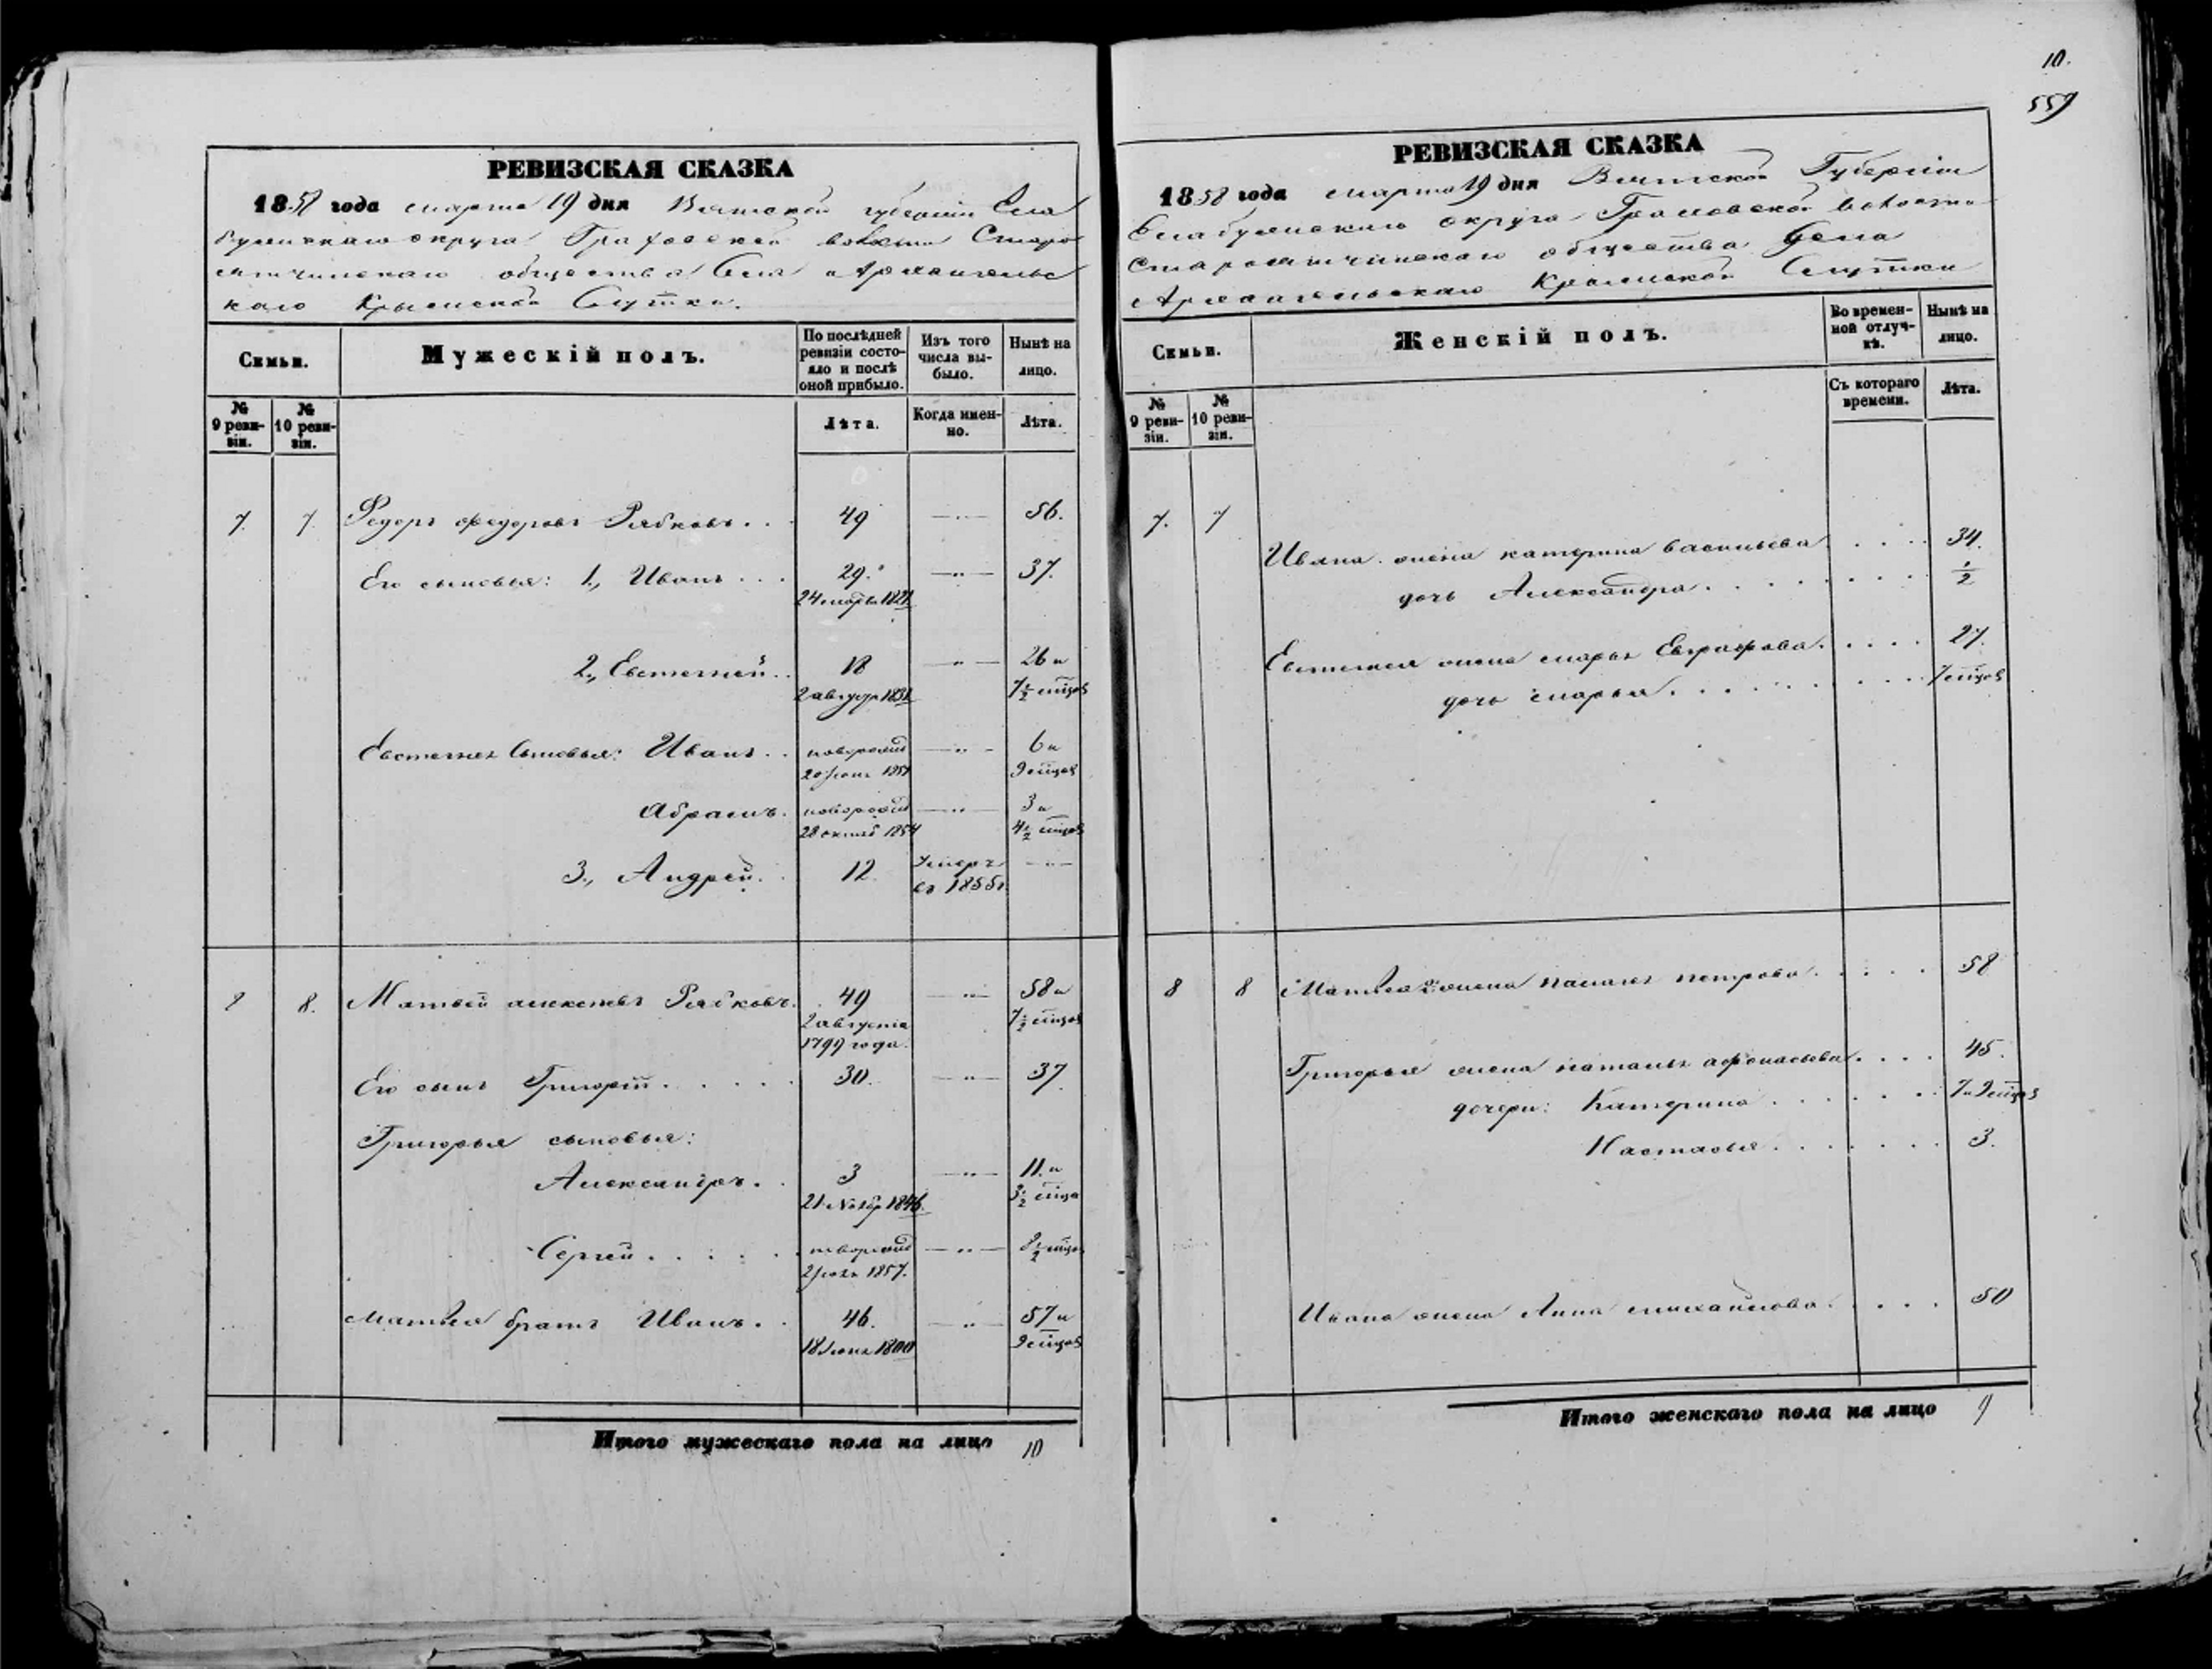 10.
559
РЕВИЗСКАЯ СКАЗКА
1858 года марта 19 дня Вятской губернiи Ела
бужскаго округа Граховской волости Старо
ятчинскаго общества Села Архангельс
каго Крымской Слутки.
Семьи.
Мужескiй полъ.
По послѣдней ревизiи состояло и послѣ оной прибыло.
Изъ того числа выбыло.
Нынѣ на лицо.
№ 9 ревизiи.
№ 10 ревизiи.
Лѣта.
Когда именно.
Лѣта.
7. 7. Федоръ Федоровъ Рябковъ . . 49 — 56.
Его сыновья: 1., Иванъ . . . 29. — 37.
24 марта 1821
2., Евстегней . . 18 — 26 и
2 август 1831 7½ мѣцов
Евстегнея сыновья: Иванъ . . новорожд — 6 и
20 Iюня 1851 9 мѣцов
Абрамъ . новорожд — 3 и
28 октяб 1854 4½ мѣцов
3., Андрей . . 12. Умеръ —
въ 1855 г.
8 8. Матвей алексеевъ Рябковъ. 49 — 58 и
2 августа 7½ мѣцов
1799 года.
Его сынъ Григорiй . . . . . 30. — 37.
Григорья сыновья:
Александръ . . 3 — 11. и
21 Ноябр 1846. 3½ мѣца
Сергей . . . . . . новорожд — 8½ мѣцов
2 Iюля 1857.
Матвея братъ Иванъ . . 46. — 57 и
18 Iюня 1800 9 мѣцов
Итого мужескаго пола на лицо 10
РЕВИЗСКАЯ СКАЗКА
1858 года марта 19 дня Вятской Губернiи
Елабужскаго округа Граховской волости
Староятчинскаго общества Села
Архангельскаго Крымской Слутки
Семьи.
Женскiй полъ.
Во временной отлучкѣ.
Нынѣ на лицо.
№ 9 ревизiи.
№ 10 ревизiи.
Съ котораго времени.
Лѣта.
7. 7
Ивана жена катерина васильева . . . . 34.
дочь Александра . . . . . . . . ½
Евстегнея жена марья Евграфова . . . . 27.
дочь марья . . . . . . . . . 7 мѣцов
8 8 Матвея жена петрова . . . . . 58
Григорья жена наталья афонасьева . . . . 45.
дочери: Катерина . . . . . . . 7 и 9 мѣцов
Настасья . . . . . . . 3.
Ивана жена Анна михайлова . . . . . 50
Итого женскаго пола на лицо 9